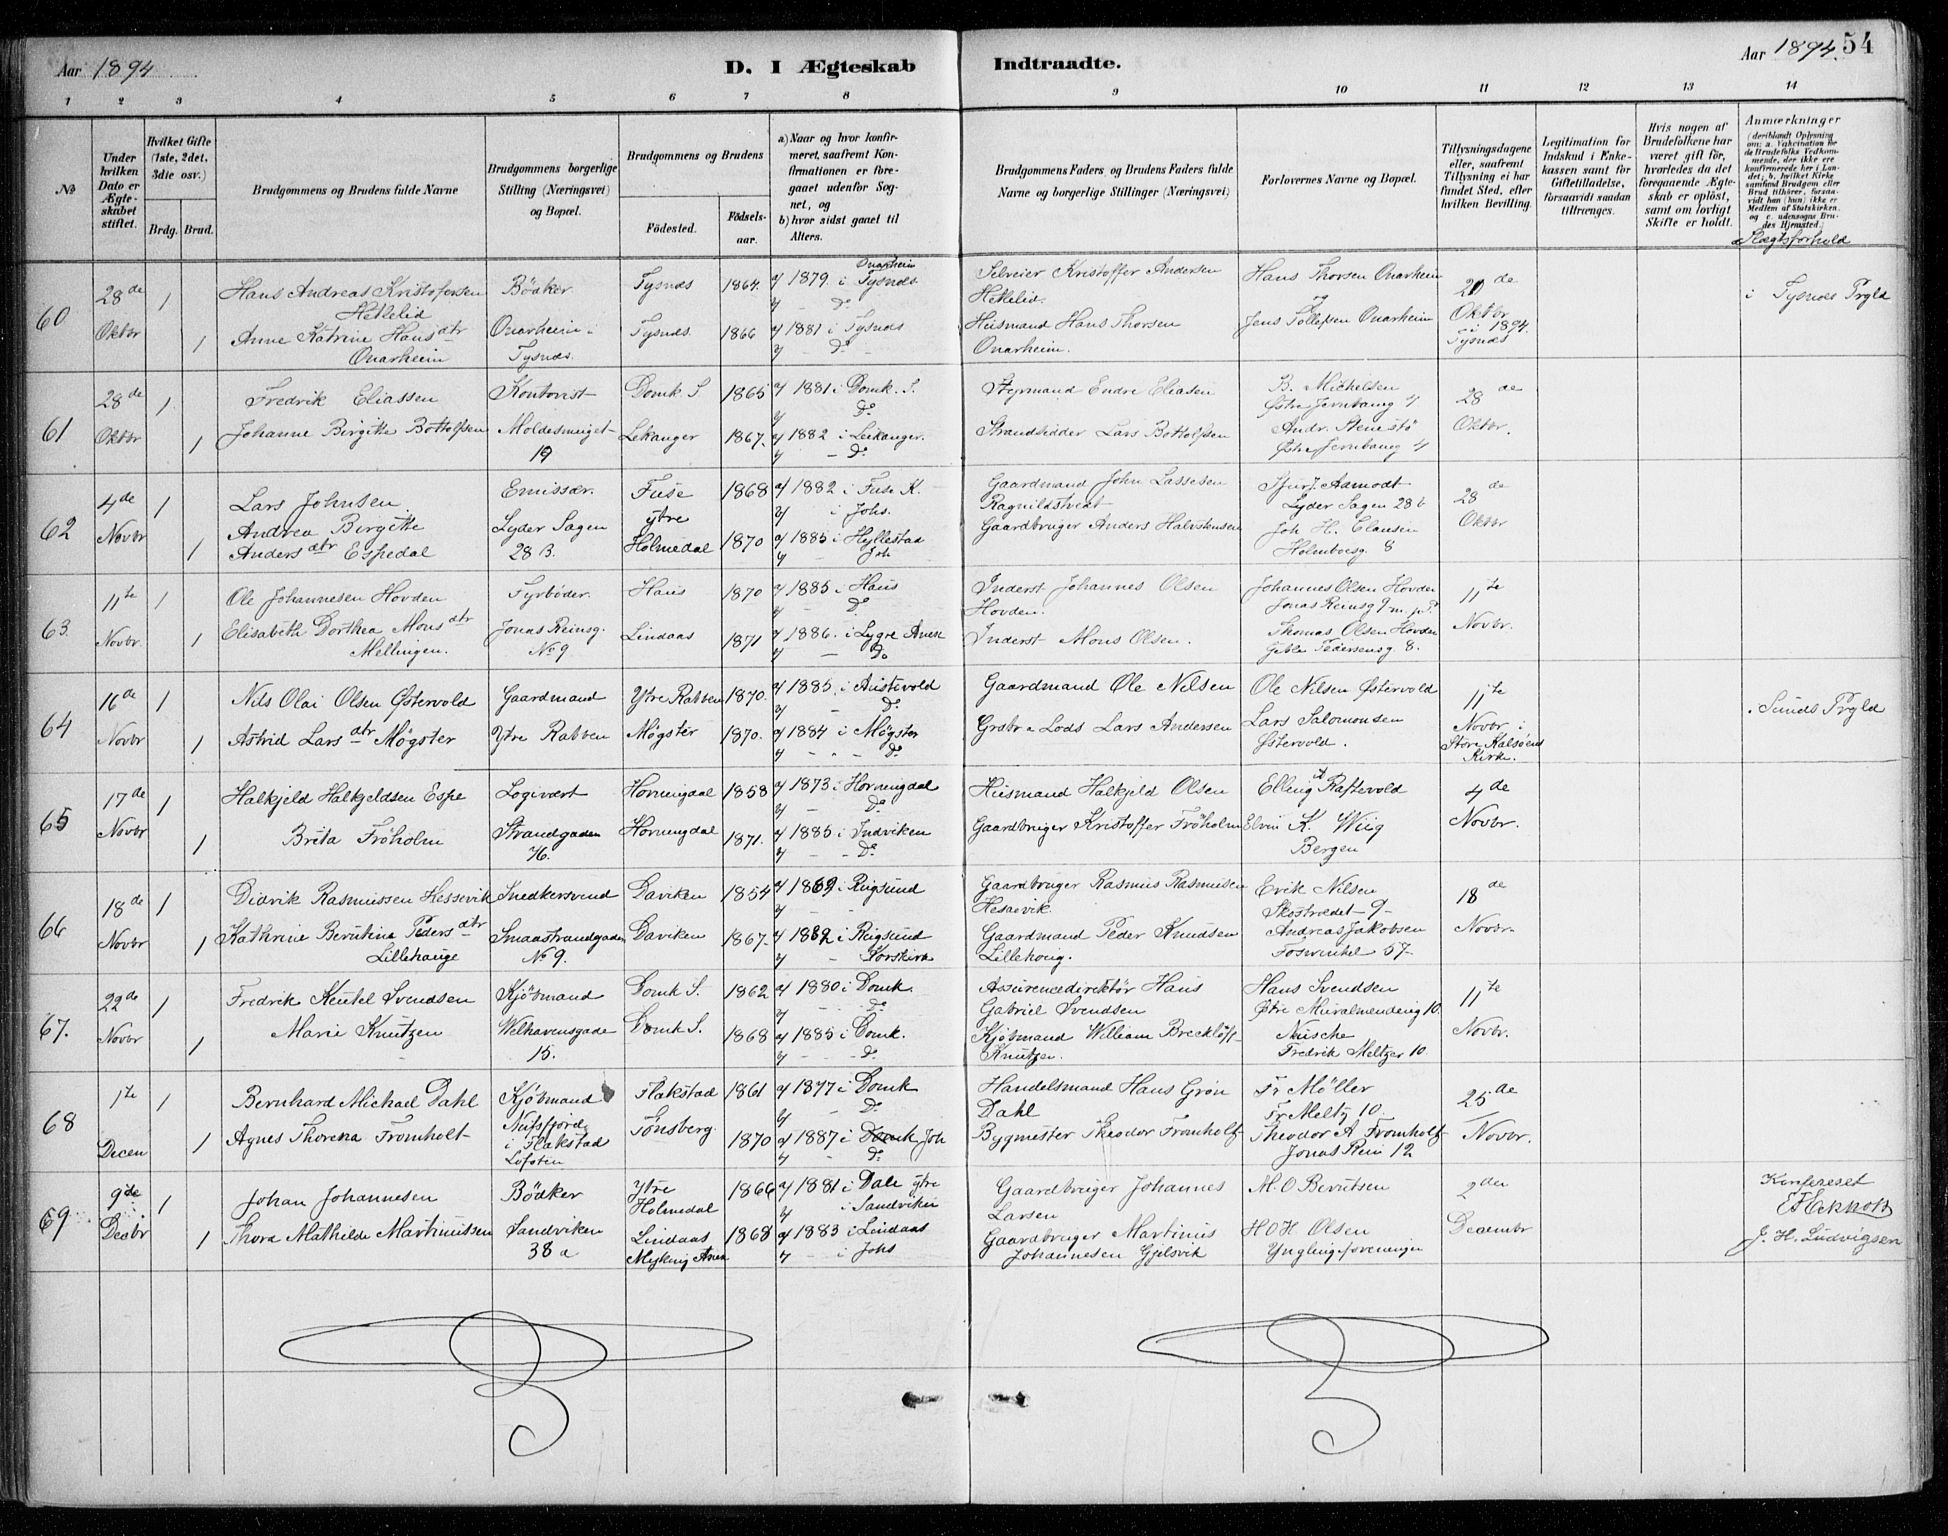 Aar 1894
D. I Ægteskab Indtraadte.
Aar 1894. 54
1 2 3 4 5 6 7 8 9 10 11 12 13 14
No
Under hvilken Dato er Ægteskabet stiftet.
Hvilket Gifte (1ste, 2det, 3die osv.)
Brdg. Brud.
Brudgommens og Brudens fulde Navne
Brudgommens borgerlige Stilling (Næringsvei) og Bopæl.
Brudgommens og Brudens
Födested.
Födselsaar.
a) Naar og hvor konfirmeret, saafremt Konfirmationen er foregaaet udenfor Sognet, og
b) hvor sidst gaaet til Alters.
Brudgommens Faders og Brudens Faders fulde Navne og borgerlige Stillinger (Næringsvei)
Forlovernes Navne og Bopæl.
Tillysningsdagene eller, saafremt Tillysning ei har fundet Sted, efter hvilken Bevilling.
Legitimation for Indskud i Enkekassen samt for Giftetilladelse, forsaavidt saadan tiltrænges.
Hvis nogen af Brudefolkene har været gift för, hvorledes da det foregaaende Ægteskab er oplöst, samt om lovligt Skifte er holdt.
Anmærkninger
(deriblandt Oplysning om: a. Vakcination for de Brudefolks Vedkommende, der ikke ere konfirmerede her i Landet, b. hvilket Kirkesamfund Brudgom eller Brud tilhörer, forsaavidt han (hun) ikke er Medlem af Statskirken, og c. udensogns Brudes Hjemsted.)
Slægtsforhold
60
28de Oktbr
1
1
Hans Andreas Kristofersen Hetlelid
Anne Katrine Hansdtr Onarheim
Bödker
Onarheim i Tysnæs.
Tysnæs 1864.
Tysnæs 1866
1879. i Onarheim Tysnæs.
Do
1881 i Tysnæs
Do
Selveier Kristoffer Andersen Hetlelid.
Husmand Hans Thorsen Onarheim.
Hans Thorsen Onarheim
og
Jens Tollefsen Onarheim
Oktbr i 1894.
Tysnæs
i Tysnæs Prgld
61
28de Oktbr
1
1
Fredrik Eliassen
Johanne Birgitte Bottolfsen
Kontorist
19
Domk S 1865
Lekanger 1867.
1881 i Domk. S.
Do
1882 i Leikanger.
Do
Styrmand Endre Eliasen
Strandsidder Lars Bottolfsen
B. Michelsen
Østre Jernbaneg 4
Andr. Stenestö
Østre Jernbaneg 4
28de Oktbr.
62
4de Novbr
1
1
Lars Johnsen
Andrea Birgitte Andersdtr Espedal
Emissær.
Lyder Sagen 28 B.
Fuse 1868
Ytre Holmedal 1870
1882 i Fuse K.
i Johs.
1885 i Hyllestad
Joh
Gaardmand John Lassesen Ragnildstvedt
Gaardbruger Anders Halvorsen
Sjur J. Aamodt
Lyder Sagen 28 b
Joh H. Clausen
Holmboesg. 8
28de Oktbr
63.
11te Novbr.
1
1
Ole Johannesen Hovden
Elisabeth Dorthea Monsdtr Mellingen.
Fyrböder.
Jonas Reinsg. No 9
Haus 1870
Lindaas 1871
1885 i Haus
Do
1886. i Lygre Anex
Do
Inderst Johannes Olsen Hovden.
Inderst Mons Olsen.
Johannes Olsen Hovden
Jonas Reinsg 9 m. p. P.
Thomas Olsen Hovden
Geble Pedersensg 8.
11te Novbr.
64
16de Novbr
1
1
Nils Olai Olsen Østervold
Astrid Larsdtr Møgster
Gaardmand
Ytre Rabben
Ytre Rabben 1870.
Møgster 1870.
1885. i Austevold
Do
1884 i Møgster
Do
Gaardmand Ole Nilsen
Grdbr. & Lods Lars Andersen
Ole Nilsen Østervold
Lars Salomonsen Østervold.
11te Novbr i Store Kalsøens Kirke.
Sunds Prgld
65
17de Novbr
1
1
Halkjeld Halkjeldsen Espe
Brita Fröholm
Logivært
Strandgaden 76.
Hornengdal 1858
Hornengdal 1871.
1873 i Hornengdal
Do
1885 i Indviken
Do
Husmand Halkjeld Olsen
Gaardbruger Kristoffer Fröholm
Elling A Raftevold
Elvin K. Wiig
Bergen
4de Novbr.
66
18de Novbr
1
1
Didrik Rasmussen Hessevik
Kathrine Berntina Pedersdtr Lillehauge
Snedkersvend
Smaastrandgaden No 9.
Daviken 1854
Daviken 1867.
1869 i Rugsund
1882 i Rugsund
Korskirk
Gaardbruger Rasmus Rasmusen Hesaevik.
Gaardmand Peder Knudsen Lillehoug.
Erik Nilsen
Skostrædet 9
Andreas Jakobsen
Foswinkel 57
18de Novbr.
67.
22de Novbr
1
1
Fredrik Keutel Svendsen
Marie Knutzen
Kjöbmand
Welhavensgade 15.
Domk S. 1862
Domk S. 1868
1880 i Domk.
Do
1885 i Domk.
Do
Assurencedirektör Hans Gabriel Svendsen
Kjöbmand William Brecklöft Knutzen.
Hans Svendsen
Østre Muralmendenig 10.
Nusche
Fredrik Meltzer 10.
11te Novbr.
68
1te Decen
1
1
Bernhard Michael Dahl
Agnes Thorena Fromholt
Kjöbmand
Nufsfjord i Flakstad Lofoten
Flakstad 1861
Tönsberg 1870
1877 i Domk
Do
1887 i Domk Joh
Do
Handelsmand Hans Grön Dahl
Bygmester Theodor Fromholt
Fr Møller
Fr Meltz 10.
Theodor A Fromholt
Jonas Rein 12
25de Novbr.
69
9de Decbr
1
1
Johan Johannesen
Thora Mathilde Martinussen
Bödker
Sandviken 38 a
Ytre Holmedal 1866
Lindaas Myking Anex 1868
1881 i Dale ytre
i Sandviken
1883 i Lindaas
i Johs
Gaardbruger Johannes Larsen
Gaardbruger Martinus Johannesen Gjelsvik
M. O Berntsen
H O H. Olsen
Ynglingeforeningen
2den Decembr
Konfereret
J. H. Ludvigsen